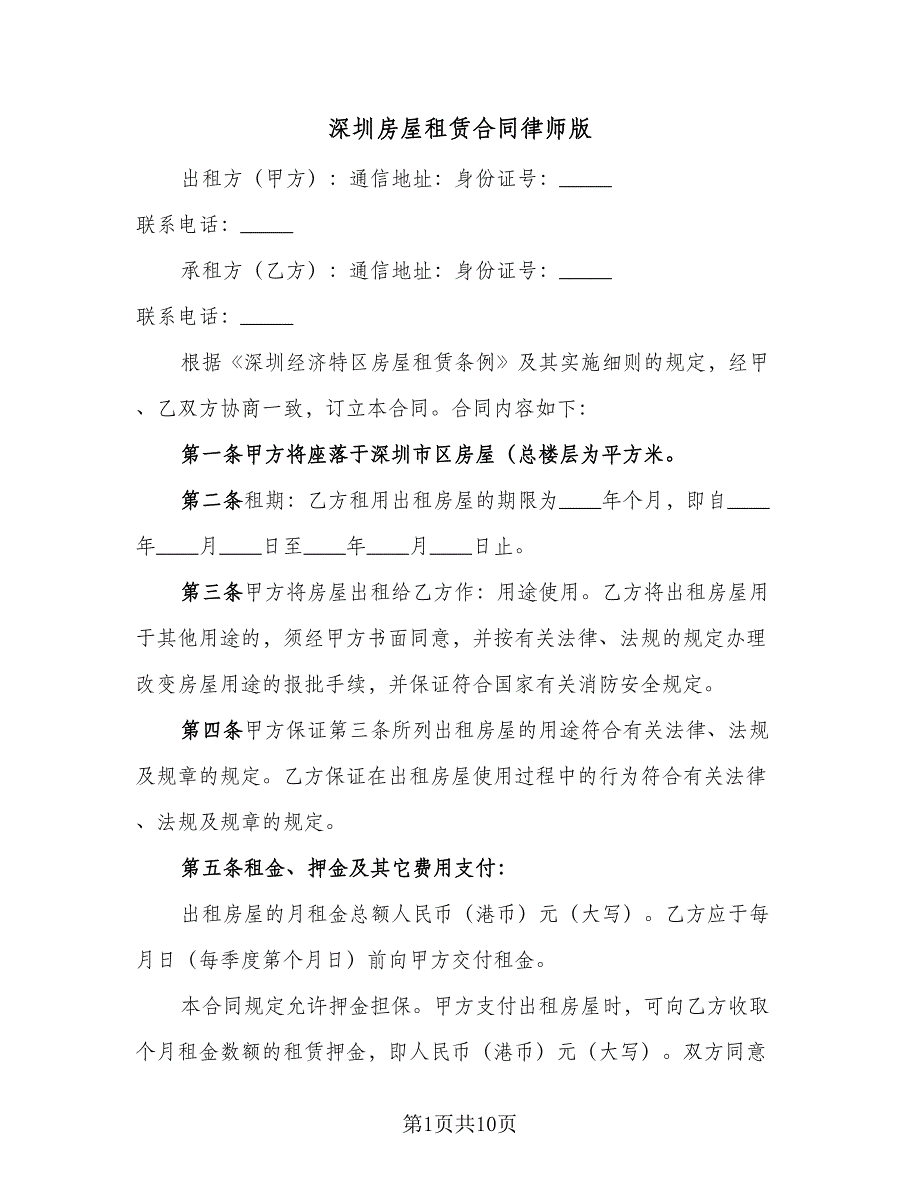 深圳房屋租赁合同律师版
出租方（甲方）：通信地址：身份证号：_____
联系电话：_____
承租方（乙方）：通信地址：身份证号：_____
联系电话：_____
根据《深圳经济特区房屋租赁条例》及其实施细则的规定，经甲
、乙双方协商一致，订立本合同。合同内容如下：
第一条甲方将座落于深圳市区房屋（总楼层为平方米。
第二条租期：乙方租用出租房屋的期限为____年个月，即自____
年____月____日至____年____月____日止。
第三条甲方将房屋出租给乙方作：用途使用。乙方将出租房屋用
于其他用途的，须经甲方书面同意，并按有关法律、法规的规定办理
改变房屋用途的报批手续，并保证符合国家有关消防安全规定。
第四条甲方保证第三条所列出租房屋的用途符合有关法律、法规
及规章的规定。乙方保证在出租房屋使用过程中的行为符合有关法律
、法规及规章的规定。
第五条租金、押金及其它费用支付：
出租房屋的月租金总额人民币（港币）元（大写）。乙方应于每
月日（每季度第个月日）前向甲方交付租金。
本合同规定允许押金担保。甲方支付出租房屋时，可向乙方收取
个月租金数额的租赁押金，即人民币（港币）元（大写）。双方同意
第1页共10页